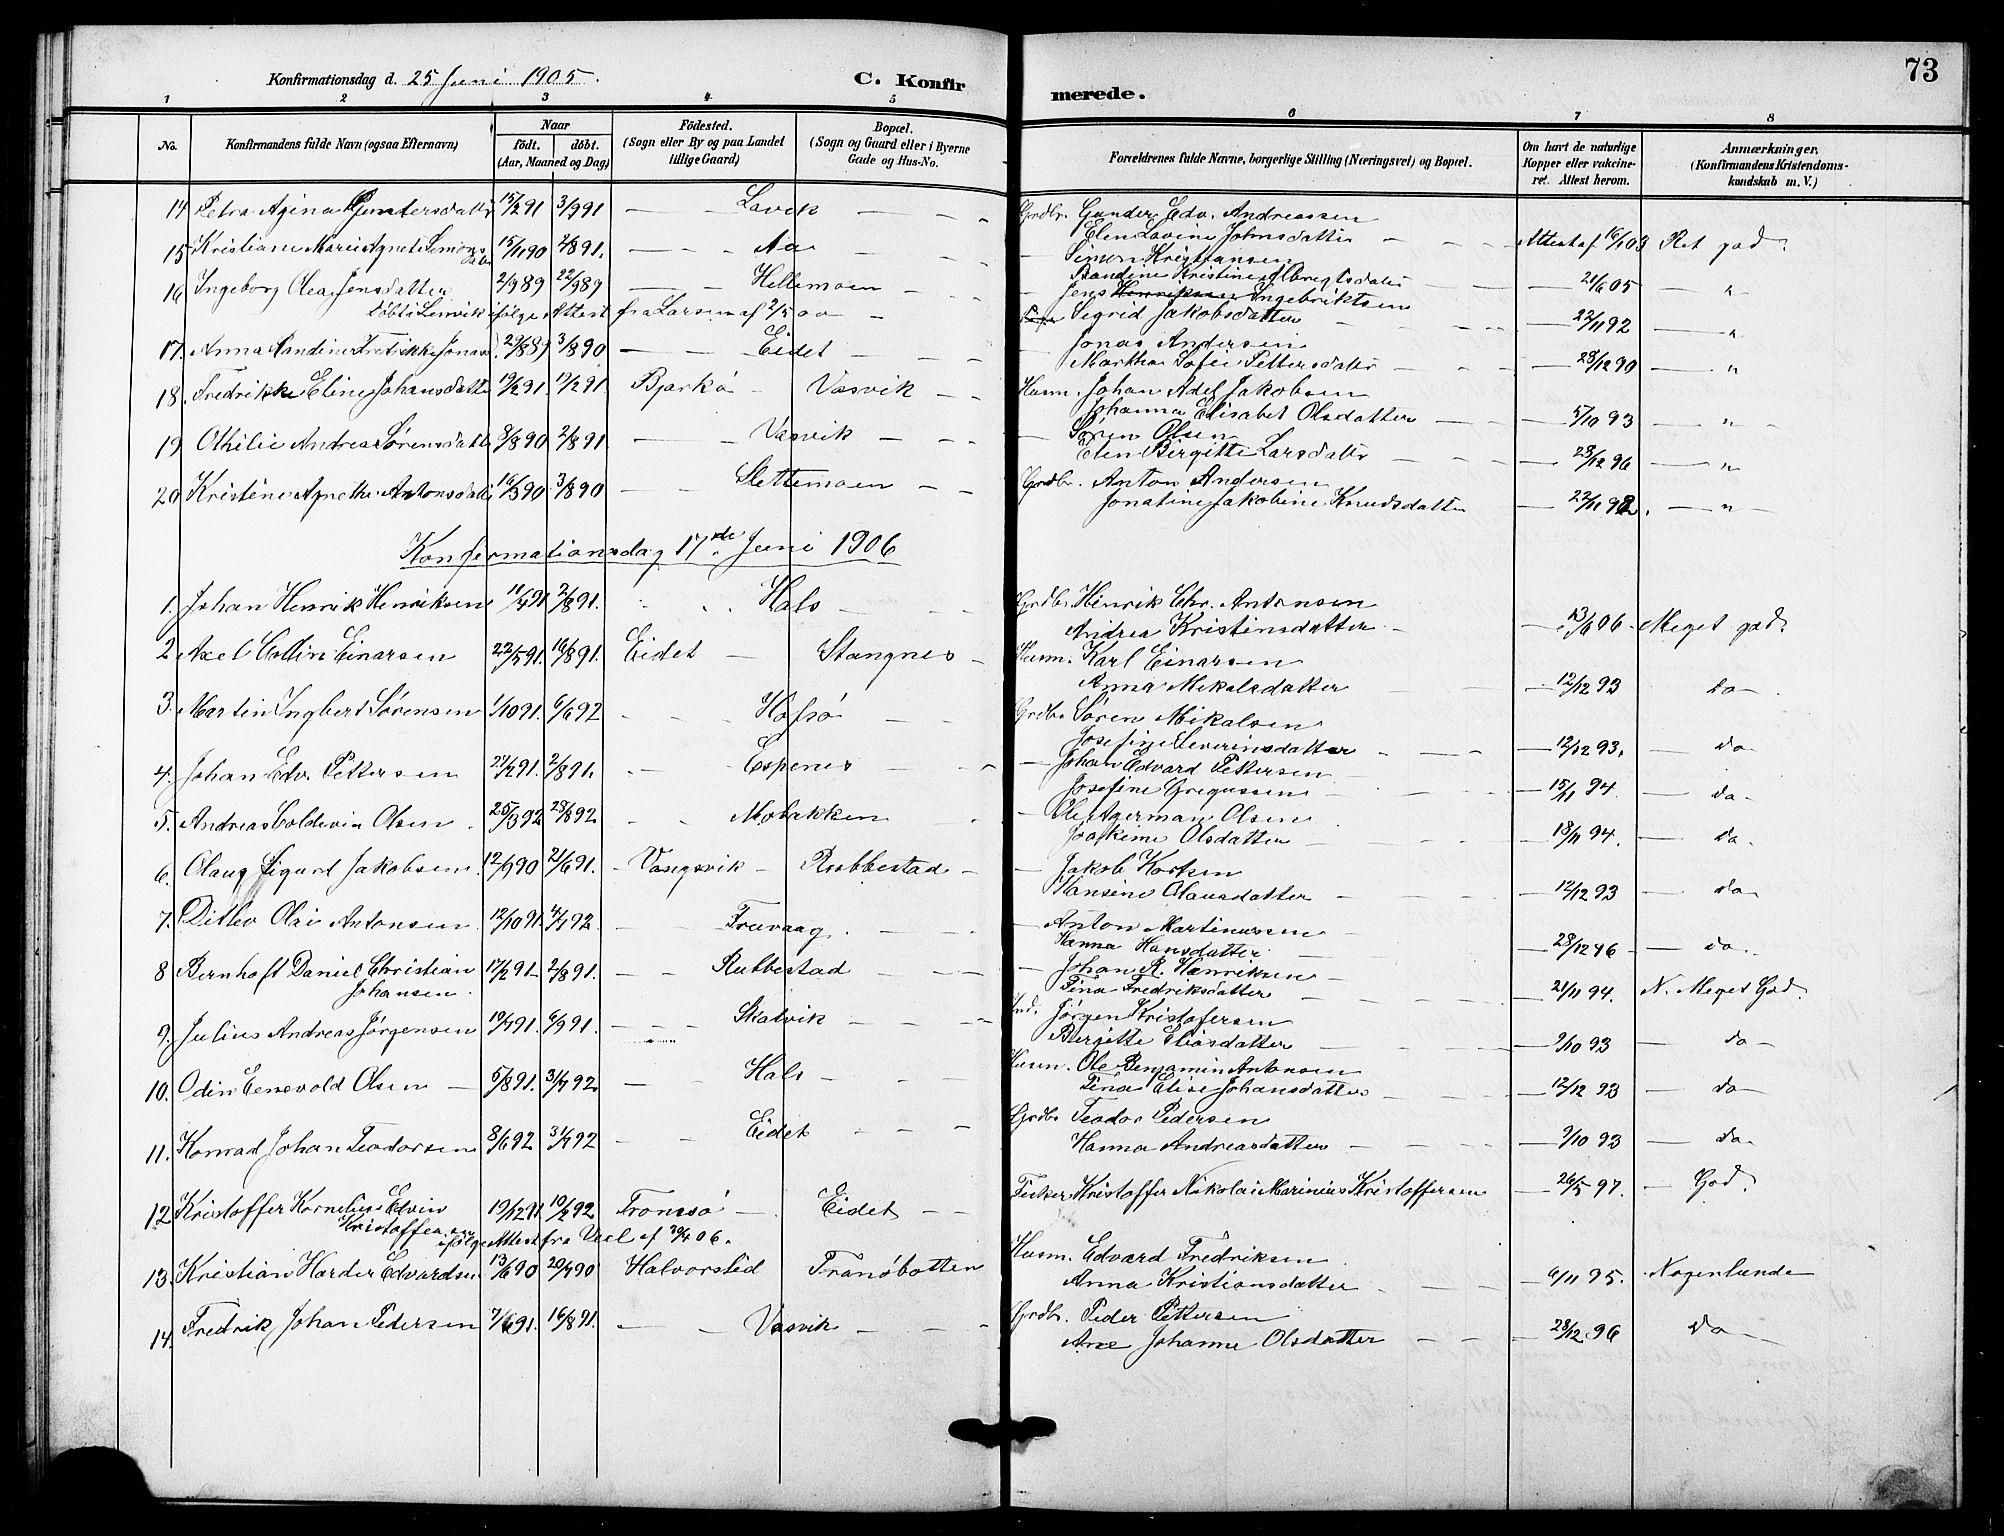 73
Konfirmationsdag d. 25 Juni 1905.
C. Konfirmerede.
1 2 3 4 5 6 7 8
No.
Konfirmandens fulde Navn (ogsaa Efternavn)
Naar
født. døbt.
(Aar, Maaned og Dag)
Fødested.
(Sogn eller By og paa Landet
tillige Gaard)
Bopæl.
(Sogn og Gaard eller i Byerne
Gade og Hus-No.
Forældrenes fulde Navne, borgerlige Stilling (Næringsvei) og Bopæl.
Om havt de naturlige
Kopper eller vakcine-
ret. Attest herom.
Anmærkninger.
(Konfirmandens Kristendoms-
kundskab m. V.)
14 Petra Agina 15/2 91 3/9 91 — — Lavik — — Grdbr. Gunder Edv. Andreassen
Elen Lovine Johnsdatter — — Attest af 16/1 03 Ret god.
15 Kristiane Marie Agnete Simons
datr 15/11 90 2/8 91. — — Aa — — Simon Kristiansen
Kristine — — 21/6 05 — "
16 Ingeborg Olea Jensdatter 2/9 89 22/9 89 — — Hellemoen — Jens Henriksen Ingebriktsen
døbt i Lenvik ifølge Attest fra Larsen af 2/5 00 — Sigrid Jakobsdatter — — 22/11 92 — "
17. Anna 29/8 89 3/8 90 — — Eidet — — Jonas Andersen
Martha Sofie Pettersdatr — — 28/12 90 — "
18. Fredrikke Eline Johansdatter 19/2 91 Bjarkø — Vasvik — — Husm. Johan Adolf Jakobsen
Johanna Elisabet Olsdatter — — 5/10 93 — "
19 Othilie Andrea Sørensdatter 8/8 90 2/8 91. — — Vasvik — — Søren Olsen
Elen Birgitte Larsdatr — — 28/12 96 — "
20 Kristine Agnethe Antonsdatr 16/3 90 3/8 90 — — Slettemoen — — Grdbr. Anton Andersen
Jonatine Jakobine Knudsdatter — 22/11 92. — "
Konfirmationsdag 17de Juni 1906
1. Johan Henrik Henriksen 11/4 91 2/8 91. Hals — — Grdbr Henrik Chr. Antonsen
Andrea Kristinsdatter — — 13/6 06 — Meget god.
2 Axel Collin Einarsen 22/5 91. 16/8 91. Eidet — Stangnes — Husm. Karl Einarsen
Anna Mikalsdatter — — 12/12 93 do —
3. Martin Ingbert Sørensen 1/10 91. 6/6 92 — — Hofsø — — Grdbr Søren Mikalsen
Josefine Severinsdatter — — 12/12 93. — do
4. Johan Edv. Pettersen 2/8 91. — — Espenes — — Johan Edvard Pettersen
Josefine Gregussen — 15/11 94 — do —
5. Andreas Coldevin Olsen 25/3 92 28/8 92 — — Mobakken — Ole Agerman Olsen
Joakime Olsdatter — — 18/11 94. — do.
6. Olaug Sigurd Jakobsen. 21/6 91. — Vangsvik — Rubbestad — — Jakob
Hansine Olausdatter — — 12/12 93 — do
7. Ditlev Olai Antonsen 12/10 91. — — Fruvaag. — — Anton Martinussen
Hanna Hansdatter — — 28/12 96 — do.
8 Bernhoft Daniel Christian
Johansen. 17/2 91 — 2/8 91. — — Rubbestad — — Johan R. Henriksen
Tina Fredriksdatter — — 21/11 94. — N. Meget God.
9. Julius Andreas Jørgensen 19/4 91. 6/9 91. — — Skatvik — — Ind. Jørgen Kristofersen
Birgitte Eliasdatter — — 9/10 93 — do —
10. Odin Olsen — 5/8 91. — — Hals — — Husm. Ole Benjamin Antonsen
Tina Elise Johansdatter — — 12/12 93 — do —
11. Konrad Johan Teodorsen 8/6 92 — — Eidet — — Grdbr Teodor Pedersen
Hanna Andreasdatter — — 9/10 93 — do —
12 Kristoffer Kornelius Edvin
Kristoffersen 19/12 91 10/2 92 Tromsø — Eidet — — Fisker Kristoffer Nikolai Marinius Kristoffersen — 26/5 97. — God.
ifølge Attest fra
13. Kristian Harder Edvardsen 13/6 90 20/7 90 Halvorslid Tranøbotten Husm. Edvard Fredriksen
Anna Kristiansdatter — — 6/11 95. — Nogenlunde
14. Fredrik Johan Pedersen 7/6 91. 16/8 91. — — Vasvik — — Grdbr. Peder Pettersen
Ane Johanne Olsdatter — — 28/12 96 — do —